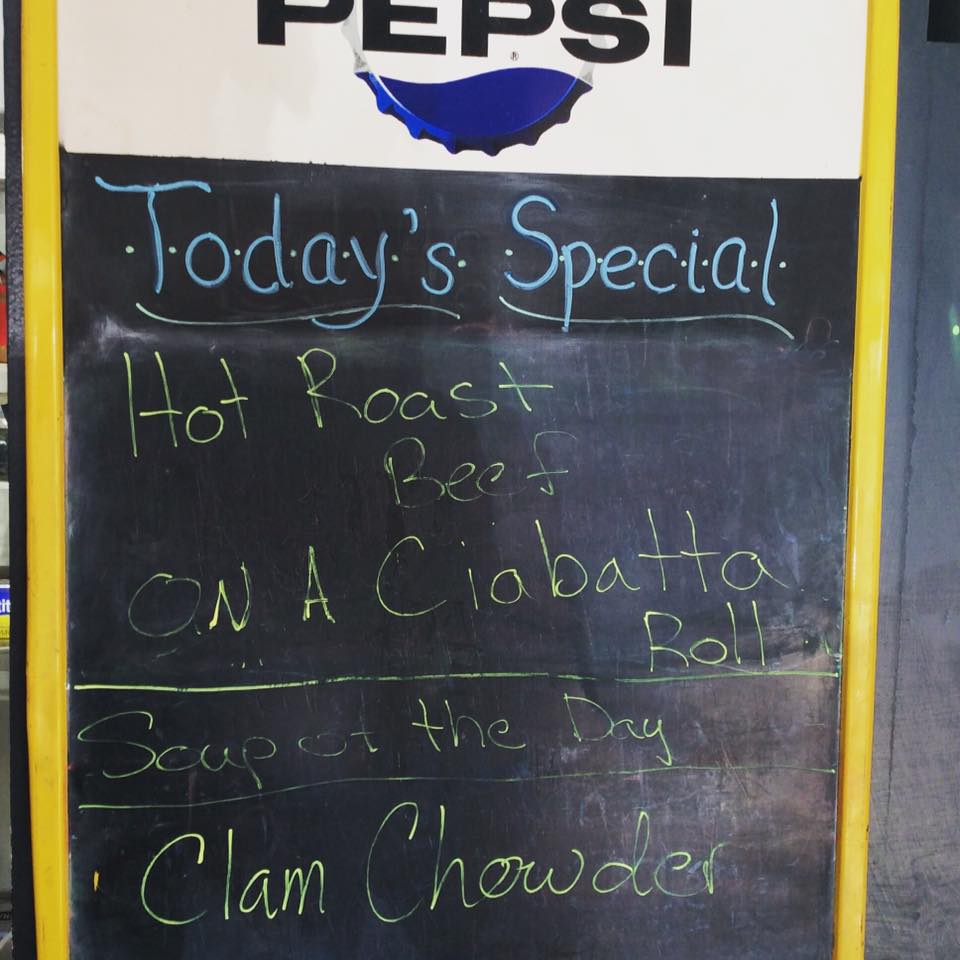 PEPSI
®
Today's Special
Hot Roast
Beef
ON A Ciabatta
Roll
Soup of the Day
Clam Chowder